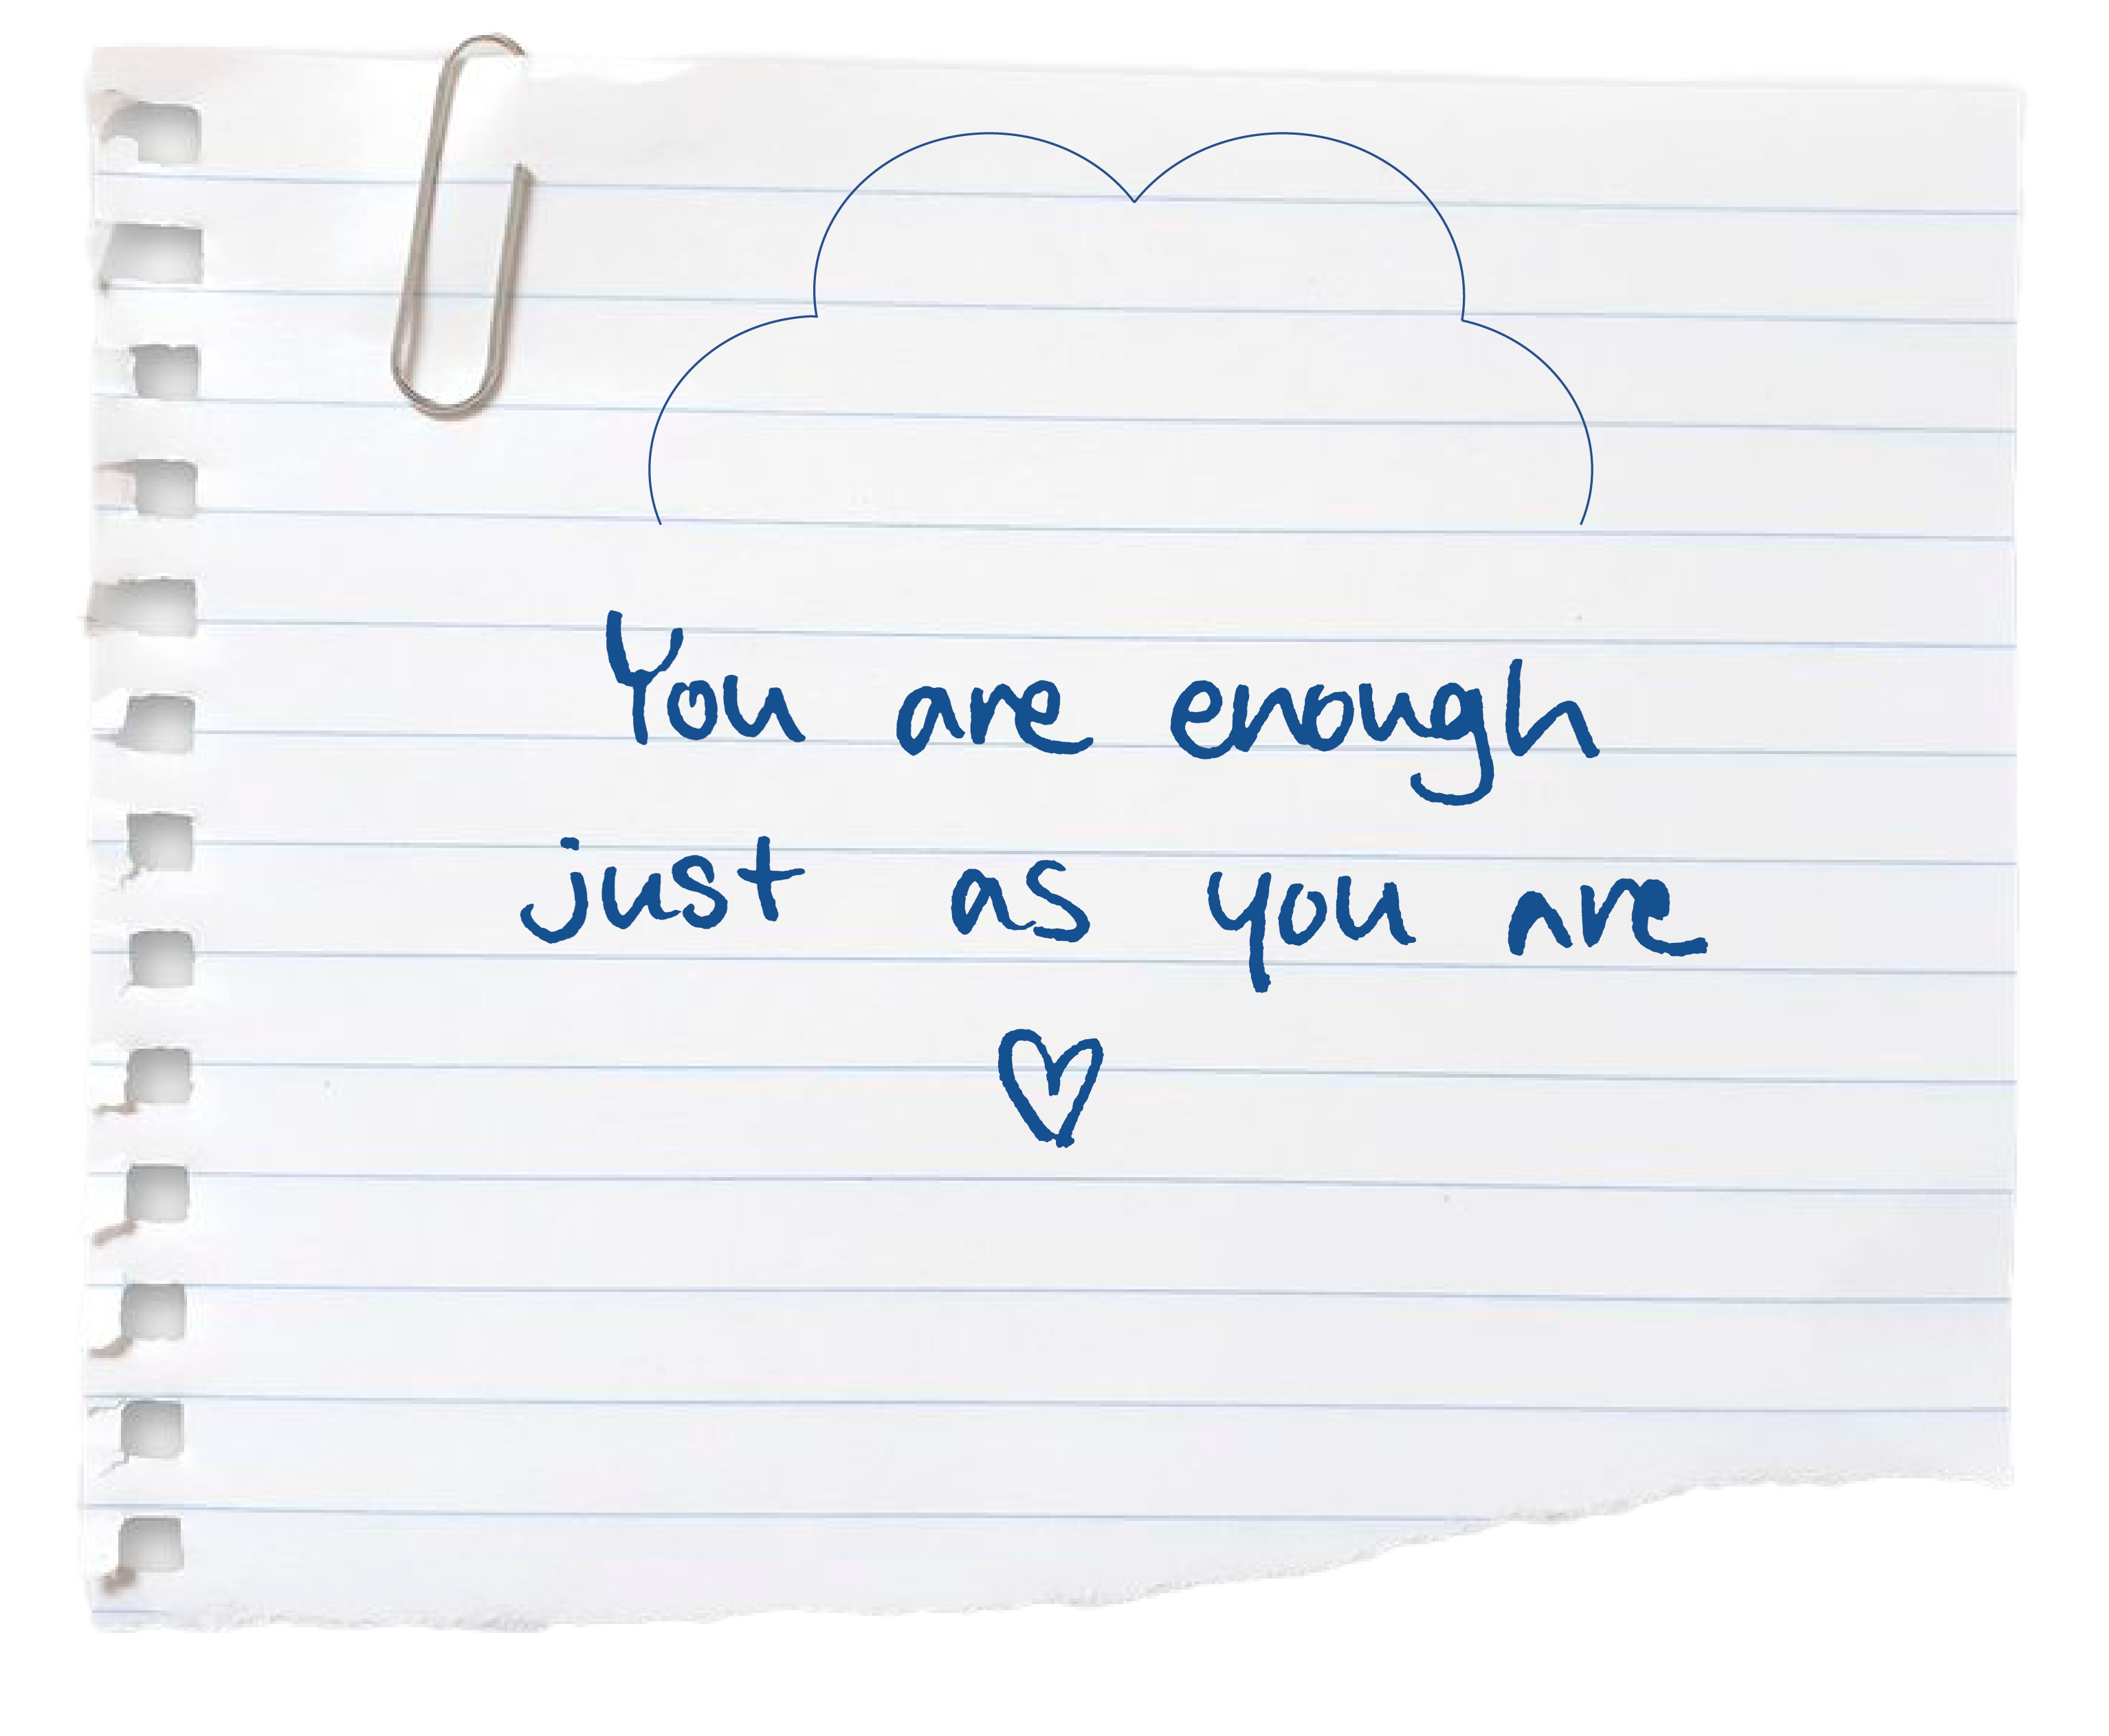 You are enough
just as you are
♡